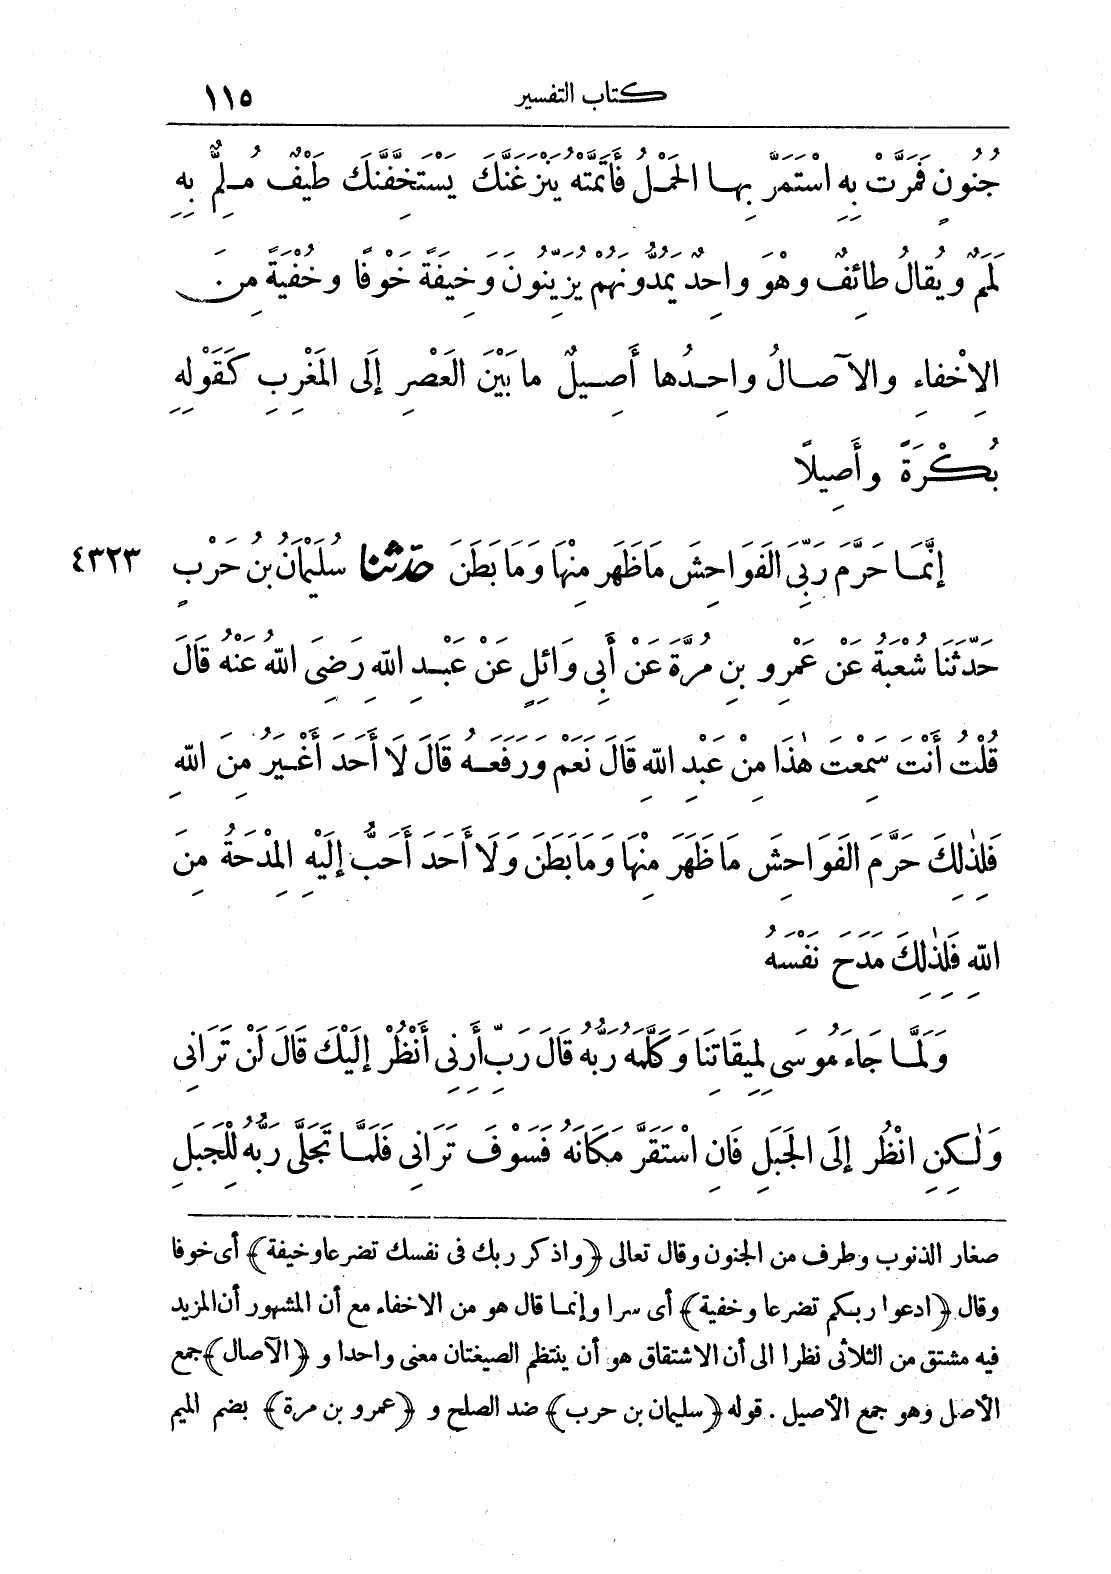 كتاب التفسير ١١٥
جُنُونٍ فَمَرَّتْ بِهِ اسْتَمَرَّ بِهَا الحَمْلُ فَأَتَمَّتْهُ يَنْزَغَنَّكَ يَسْتَخِفَّنَّكَ طَيْفٌ مُلِمٌّ بِهِ
لَمَمٌ وَيُقالُ طائِفٌ وَهْوَ واحِدٌ يَمُدُّونَهُمْ يُزَيِّنُونَ وَخِيفَةً خَوْفًا وَخُفْيَةً مِنَ
الإِخْفاءِ والآصالُ واحِدُها أَصِيلٌ ما بَيْنَ العَصْرِ إِلَى المَغْرِبِ كَقَوْلِهِ
بُكْرَةً وأَصِيلًا
إِنَّمَا حَرَّمَ رَبِّىَ الفَوَاحِشَ مَا ظَهَرَ مِنْهَا وَمَا بَطَنَ حَدَّثَنَا سُلَيْمَانُ بنُ حَرْبٍ ٤٣٢٣
حَدَّثَنَا شُعْبَةُ عَنْ عَمْرِو بنِ مُرَّةَ عَنْ أَبِى وَائِلٍ عَنْ عَبْدِ اللهِ رَضِىَ اللهُ عَنْهُ قَالَ
قُلْتُ أَنْتَ سَمِعْتَ هٰذَا مِنْ عَبْدِ اللهِ قَالَ نَعَمْ وَرَفَعَهُ قَالَ لَا أَحَدَ أَغْيَرُ مِنَ اللهِ
فَلِذٰلِكَ حَرَّمَ الفَوَاحِشَ مَا ظَهَرَ مِنْهَا وَمَا بَطَنَ وَلَا أَحَدَ أَحَبُّ إِلَيْهِ المِدْحَةُ مِنَ
اللهِ فَلِذٰلِكَ مَدَحَ نَفْسَهُ
وَلَمَّا جَاءَ مُوسَى لِمِيقَاتِنَا وَكَلَّمَهُ رَبُّهُ قَالَ رَبِّ أَرِنِى أَنْظُرْ إِلَيْكَ قَالَ لَنْ تَرَانِى
وَلٰكِنِ انْظُرْ إِلَى الجَبَلِ فَانِ اسْتَقَرَّ مَكَانَهُ فَسَوْفَ تَرَانِى فَلَمَّا تَجَلَّى رَبُّهُ لِلْجَبَلِ
صغار الذنوب وطرف من الجنون وقال تعالى ﴿واذكر ربك فى نفسك تضرعا وخيفة﴾ أى خوفا
وقال ﴿ادعوا ربكم تضرعا وخفية﴾ أى سرا وإنما قال هو من الاخفاء مع أن المشهور أن المزيد
فيه مشتق من الثلاثى نظرا الى أن الاشتقاق هو أن ينتظم الصيغتان معنى واحدا و ﴿الآصال﴾ جمع
الأصل وهو جمع الأصيل . قوله ﴿سليمان بن حرب﴾ ضد الصلح و ﴿عمرو بن مرة﴾ بضم الميم